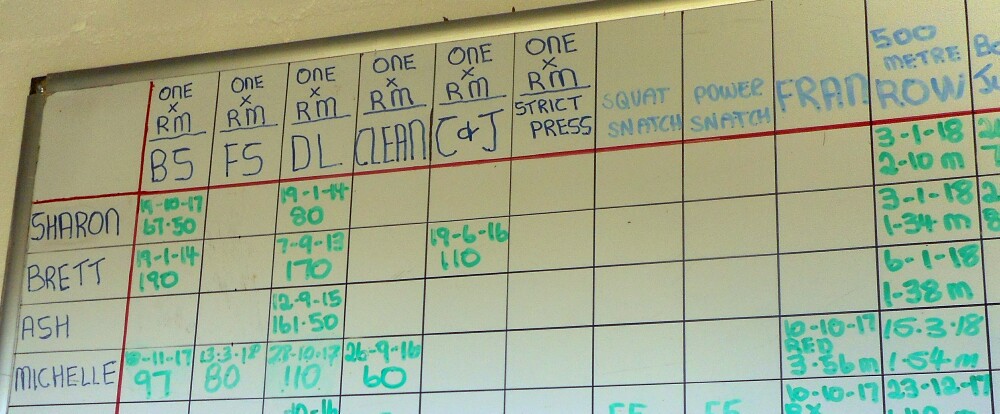 ONE
x
RM
BS
ONE
x
RM
FS
ONE
x
RM
DL
ONE
x
RM
CLEAN
ONE
x
RM
C&J
ONE
x
RM
STRICT
PRESS
SQUAT
SNATCH
POWER
SNATCH
FRAN
500
METRE
ROW
SHARON
19-10-17
67.50
19-1-14
80
3-1-18
2-10 m
BRETT
19-1-14
190
7-9-13
170
19-6-16
110
3-1-18
1-34 m
ASH
12-9-15
161.50
6-1-18
1-38 m
MICHELLE
-11-17
97
13.3.18
80
28-10-17
110
26-9-16
60
10-10-17
RED
3-56m
15.3.18
1-54m
10-10-17
RX
23-12-17